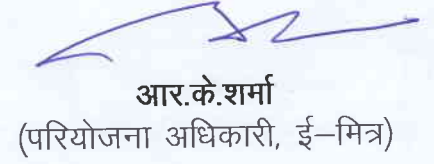 आर.के.शर्मा
(परियोजना अधिकारी, ई–मित्र)